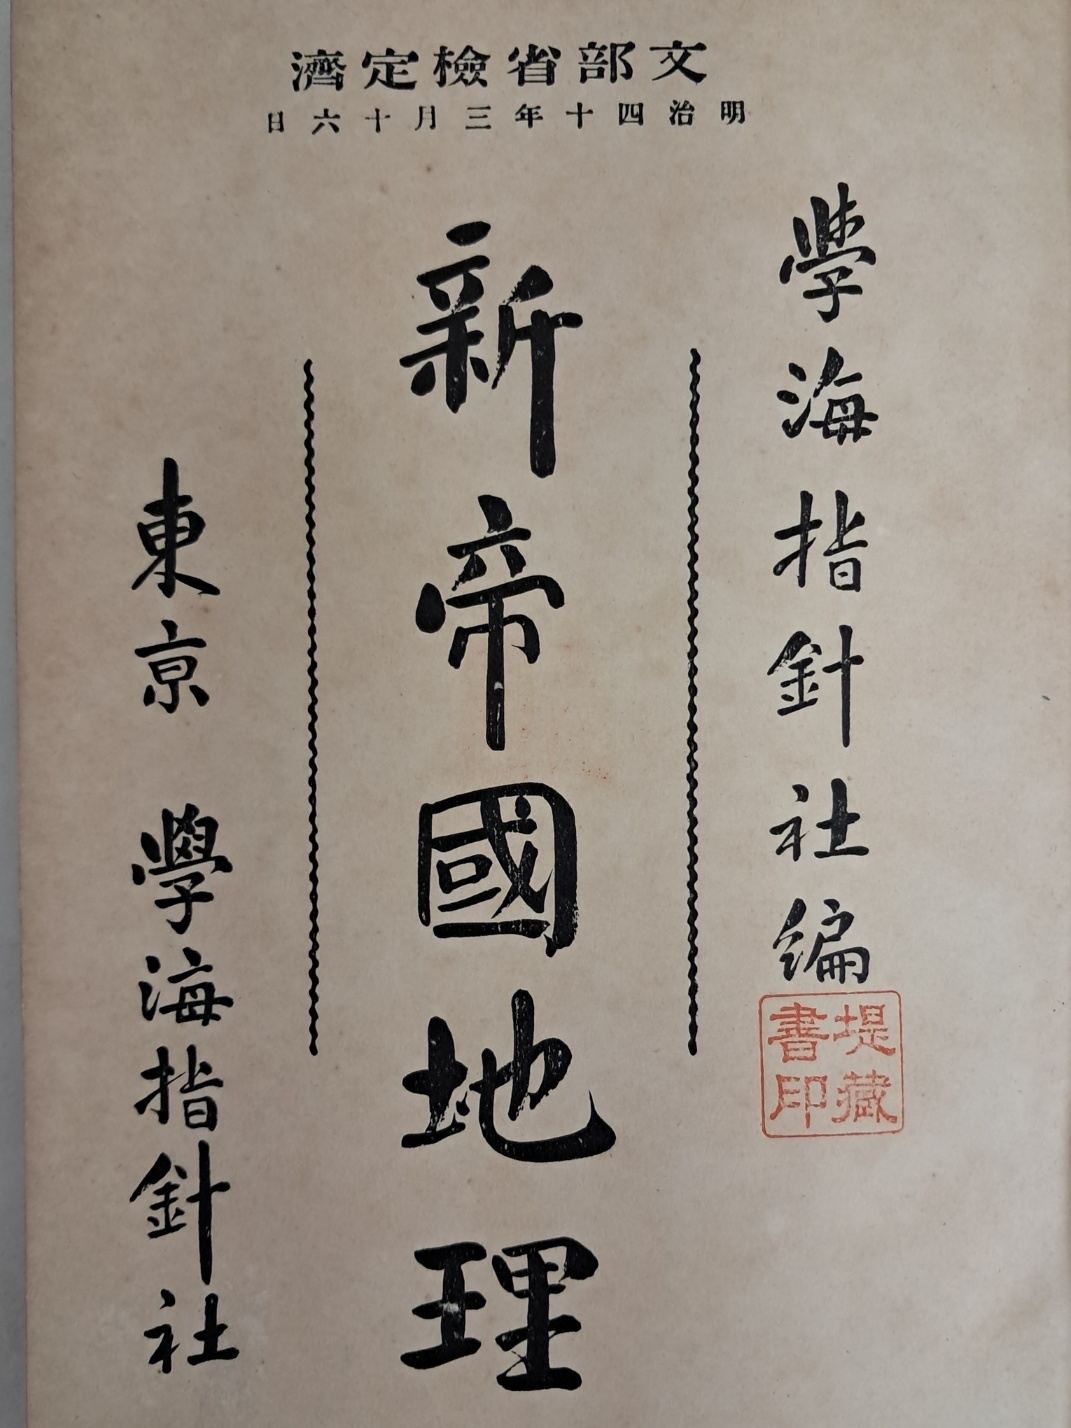 文部省檢定濟
明治四十年三月十六日
學海指針社編
堤藏
書印
新帝國地理
東京 學海指針社